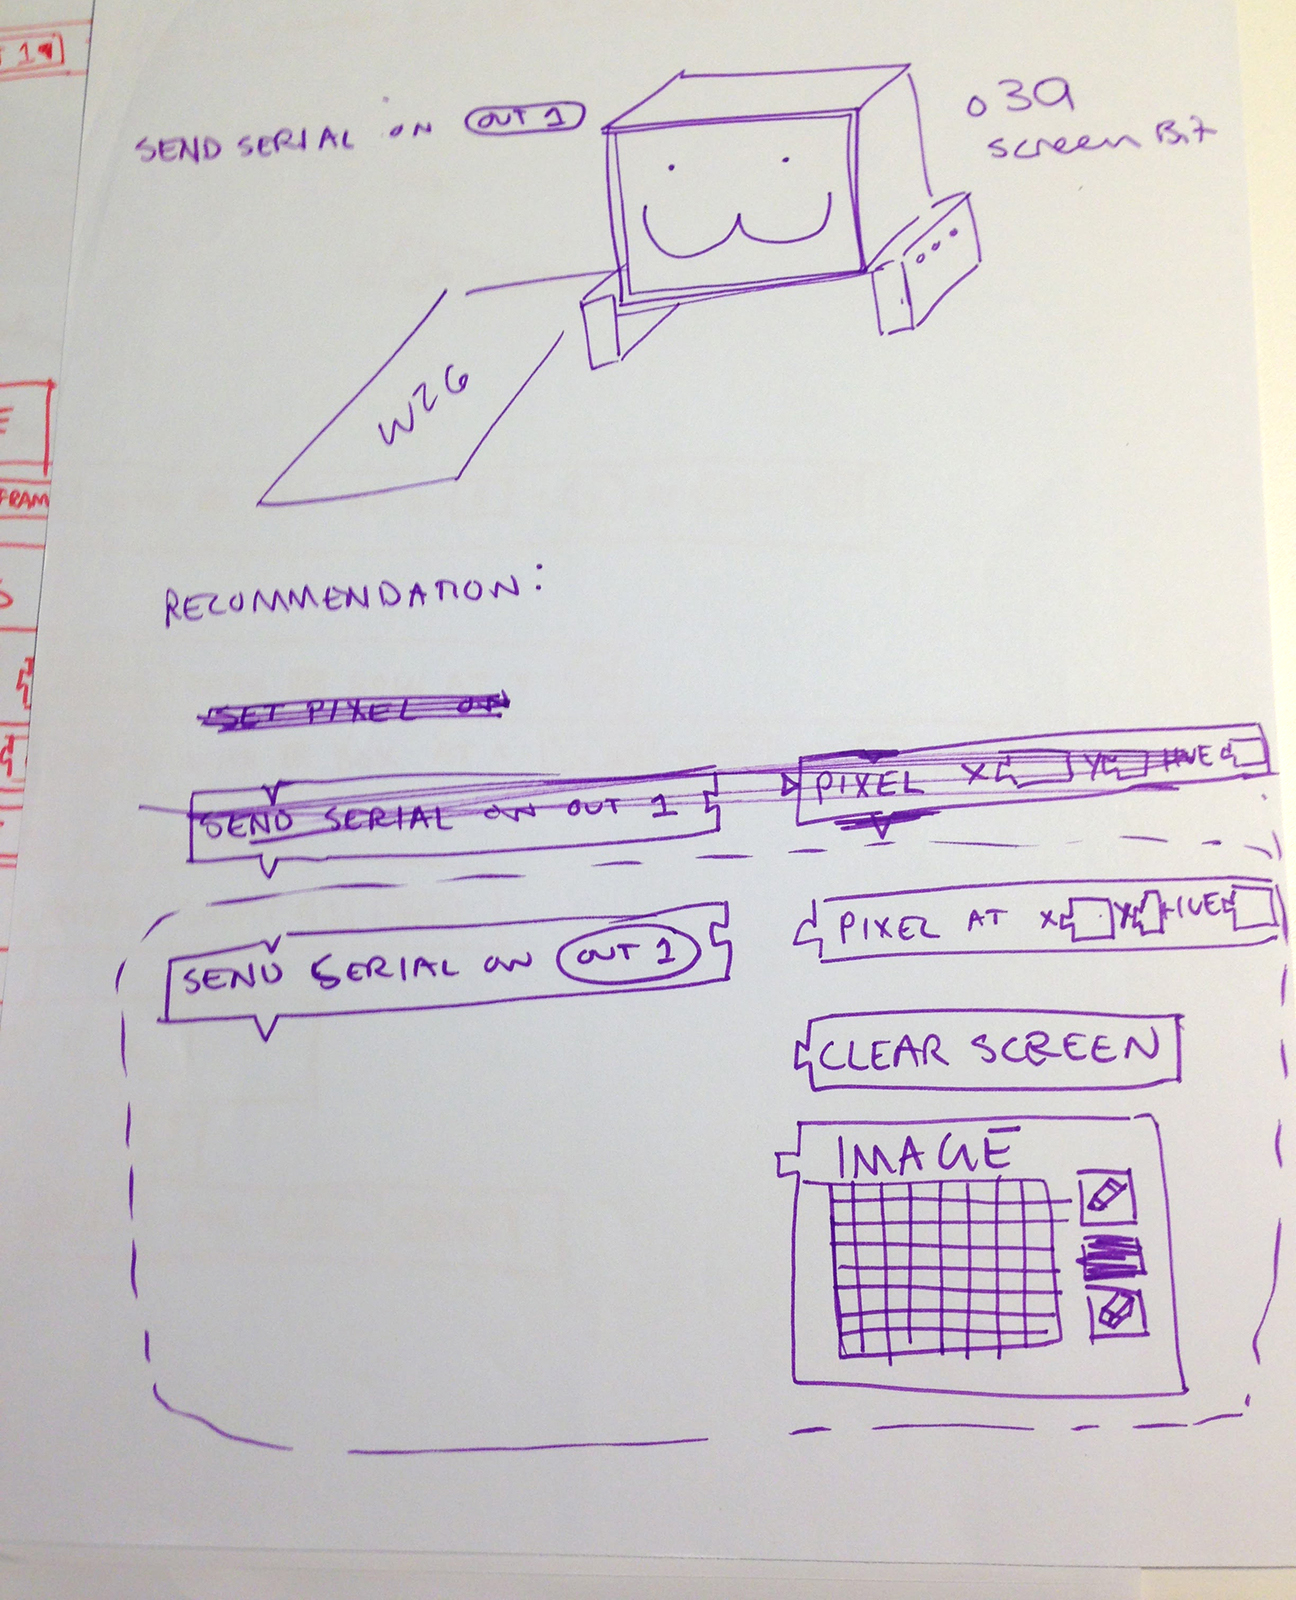 SEND SERIAL ON OUT 1
o3a
screen Bit
W26
RECOMMENDATION:
SET PIXEL ON
SEND SERIAL ON OUT 1
PIXEL X Y HUE
SEND SERIAL ON OUT 1
PIXEL AT X Y HUE
CLEAR SCREEN
IMAGE
FRAM